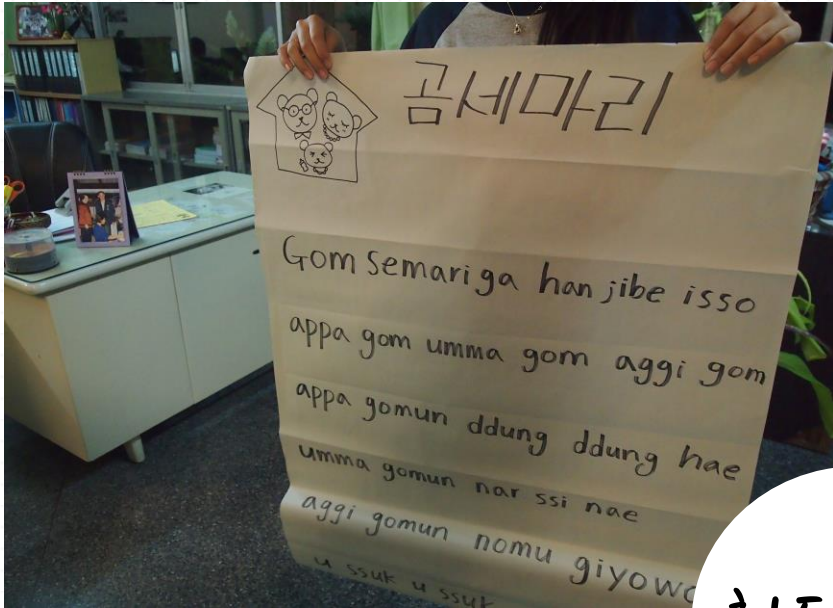 곰세마리
Gom semariga han jibe isso
appa gom umma gom aggi gom
appa gomun ddung ddung hae
umma gomun nar ssi nae
aggi gomun nomu giyowo
u ssuk u ssuk